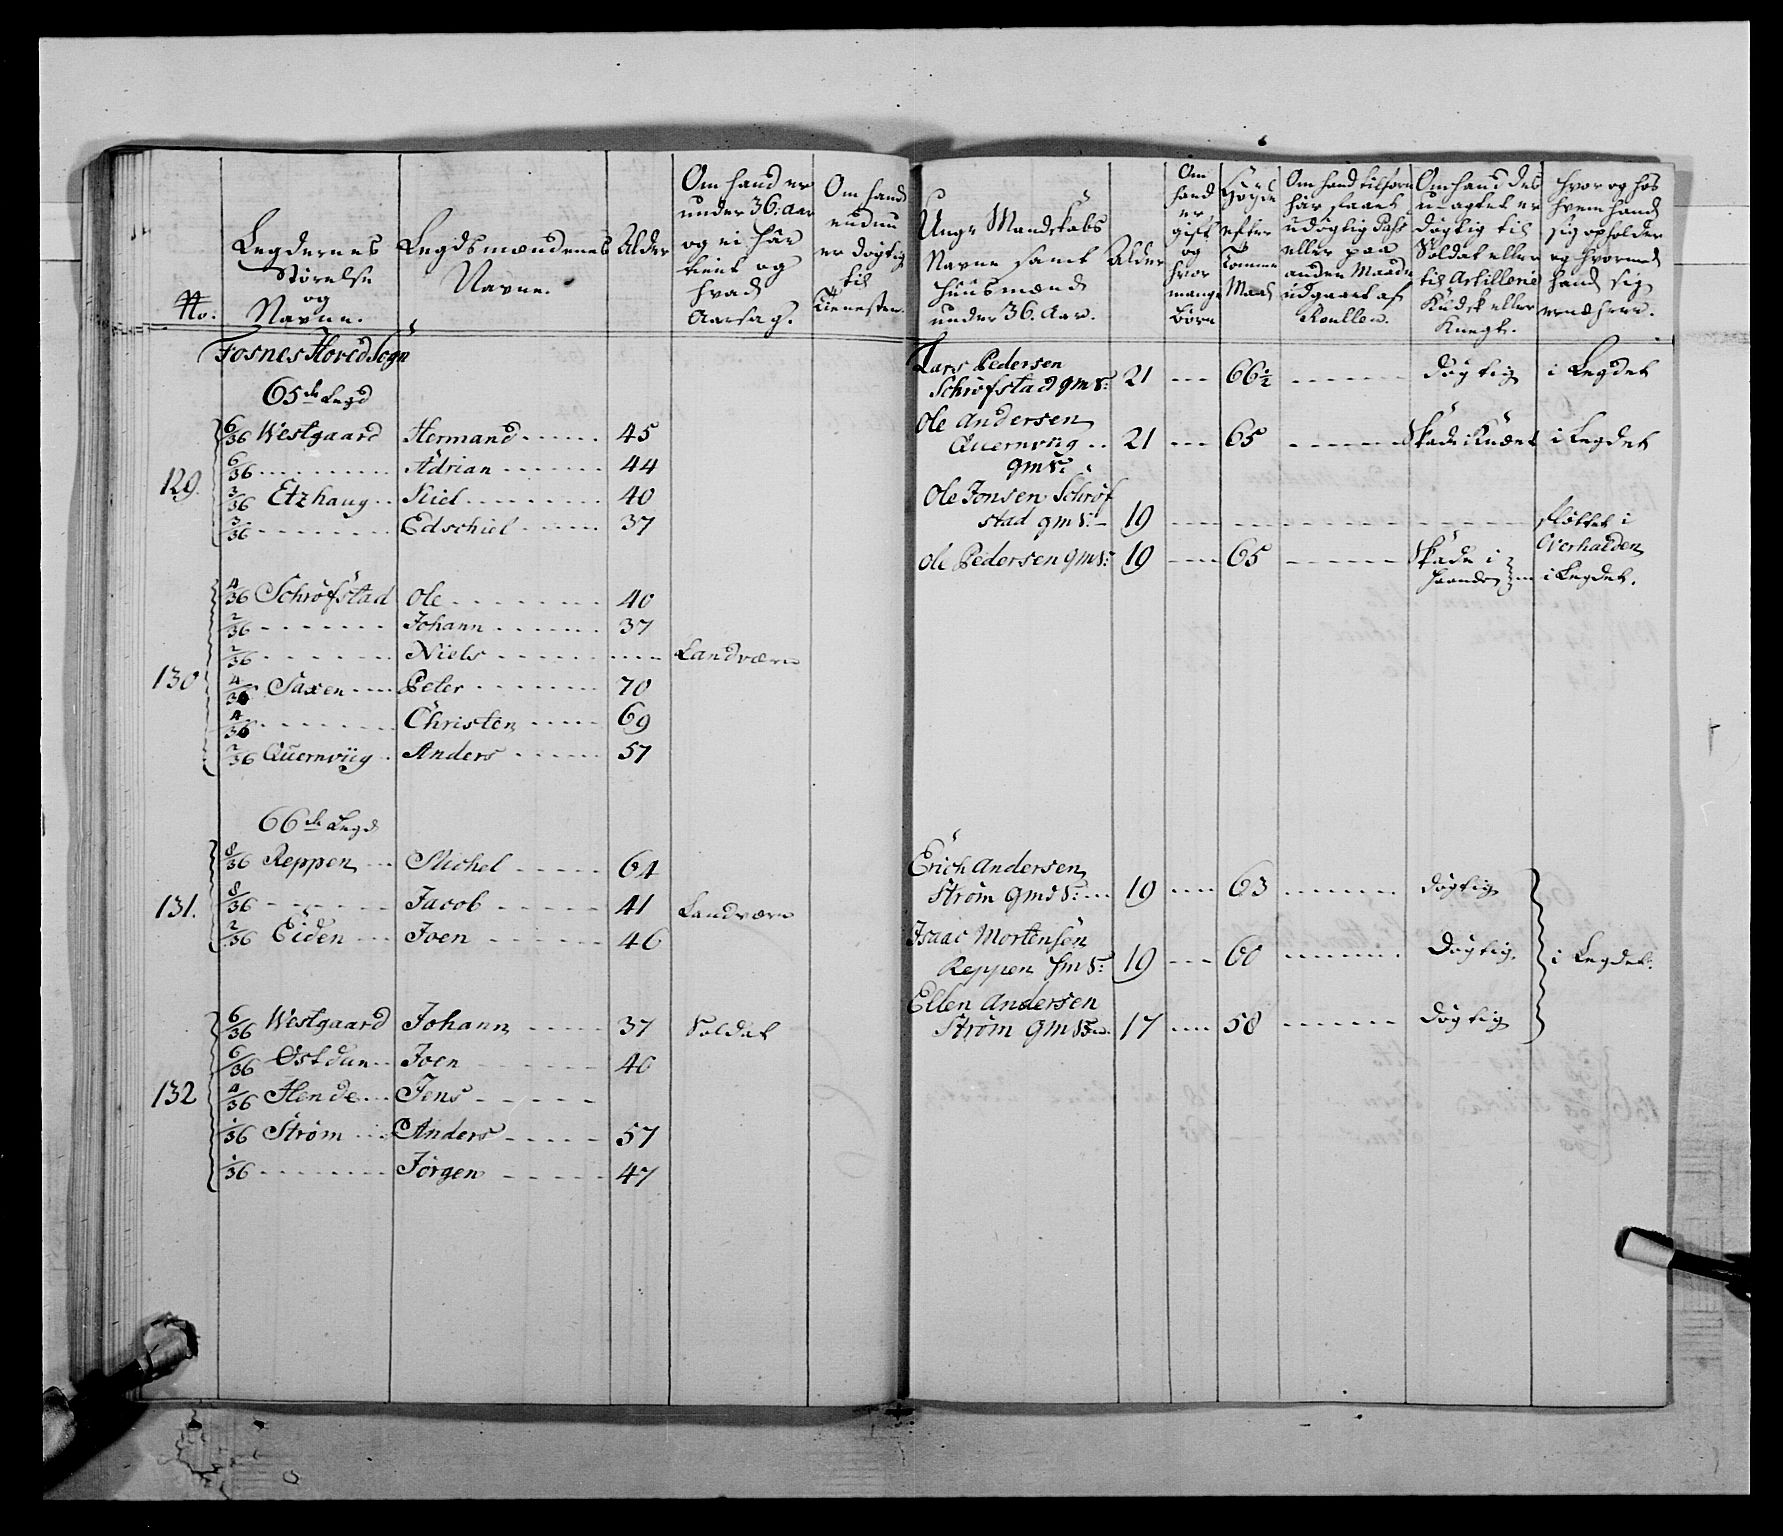 No:
Legdernes
Störelse
og
Navne.
Legdsmændenes
Navne.
Alder
Om hand er
under 36: Aar
og ei har
tient og
hvad
Aarsag.
Om hand
endnu
er dögtig
til
Tienesten.
Fosnes Hoved Sogn
65de Legd
129.
6/36 Westgaard Hermand 45
6/36 Adrian 44
3/36 Etzhaug Niel 40
3/36 Edschiel 37
130
4/36 Schröfstad Ole 40
2/36 Johann 37
2/36 Niels Landværn
4/36 Saxen Peter 70
4/36 Christen 69
2/36 Quernviig Anders 57
66de Legd
131.
8/36 Reppen Michel 64
8/36 Jacob 41 Landværn
2/36 Eiden Joen 46
132
6/36 Westgaard Johann 37 Soldat
6/36 Østdun Joen 40
4/36 Hende Jens
1/36 Strøm Anders 57
1/36 Jörgen 47
Unge Mandskabs
Navne samt
Huusmænd
under 36. Aar.
Alder
Om
hand
er
gift
og
hvor
mange
Börn
Höyde
efter
Tomme
Maal
Om hand tilforn
har faaet
udögtig Pass
eller paa
anden Maade
udgaaet af
Roullen.
Om hand des
uagtet er
dögtig til
Soldat eller
til Artillerie
Kudsk eller
Knegt.
Hvor og hos
hvem hand
sig opholder
og hvormed
hand sig
ernærer.
Lars Pedersen
Schröfstad gmS: 21 66½ dögtig i Legdet
Ole Andersen
Quernviig 21 65 Skade i Knæet i Legdet
gmS:
Ole Jonsen Schröf
stad gmS: 19 fløttet i
Overhalden
Ole Pedersen gmS: 19 65 Skade i
Haanden i Legdet.
Erich Andersen
Strøm gmS: 19 63 dögtig
Isaac Mortensen
Reppen hmS: 19 60 Dögtig. i Legdet.
Ellen Andersen
Strøm gmS: 17 58 dögtig